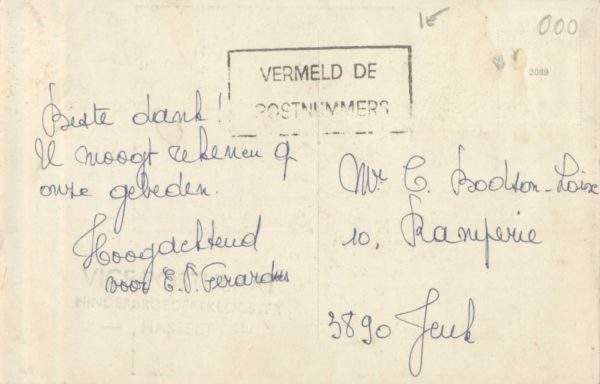 1E
000
2089
VERMELD DE
POSTNUMMERS
Beste dank!
U moogt rekenen op
onze gebeden.
Hoogachtend
voor E.P. Gerardus
MINDERBROEDERKLOOSTER
— HASSELT —
Mr C. Bodson-Loix
10, Kamperie
3890 Jeuk